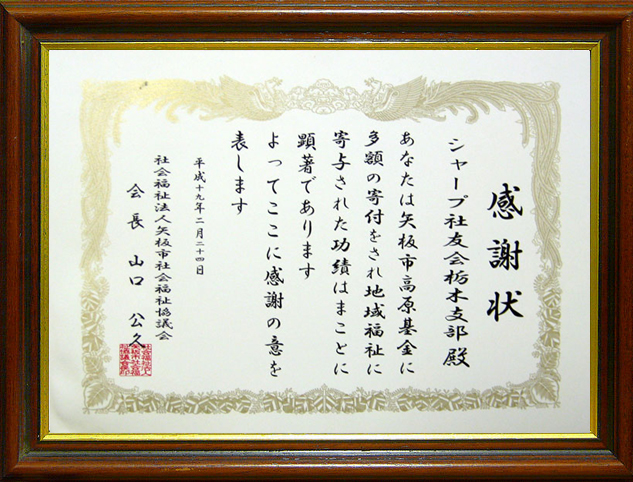 感謝状
シャープ社友会栃木支部 殿
あなたは矢板市高原基金に
多額の寄付をされ地域福祉に
寄与された功績はまことに
顕著であります
よってここに感謝の意を
表します
平成十九年二月二十四日
社会福祉法人矢板市社会福祉協議会
会長 山口 公久